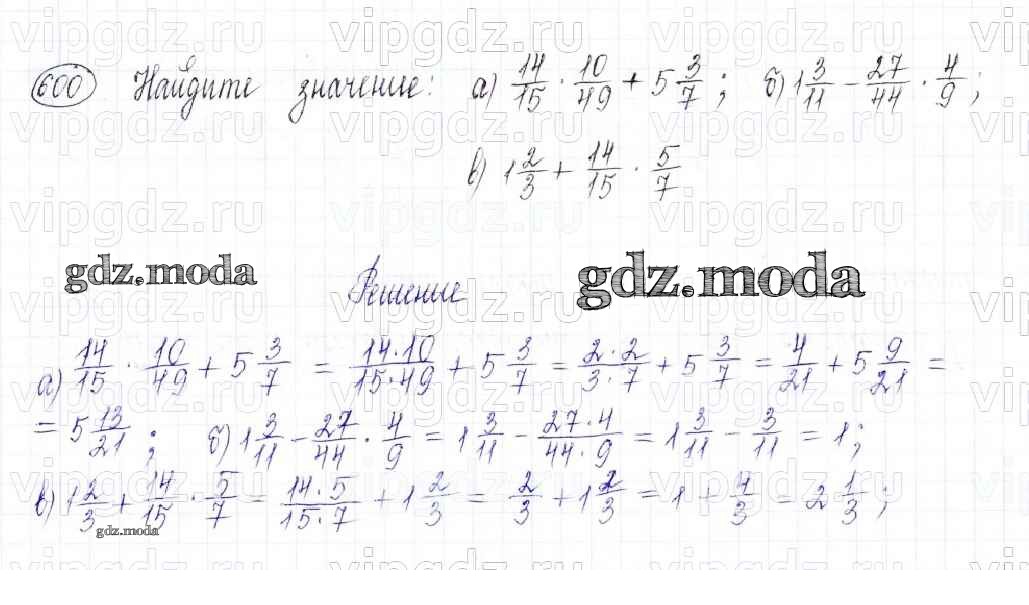 600 Найдите значение: а) 14/15 · 10/49 + 5 3/7 ; б) 1 3/11 − 27/44 · 4/9 ;
в) 1 2/3 + 14/15 · 5/7
gdz.moda Решение gdz.moda
а) 14/15 · 10/49 + 5 3/7 = 14·10/15·49 + 5 3/7 = 2·2/3·7 + 5 3/7 = 4/21 + 5 9/21 =
= 5 13/21 ; б) 1 3/11 − 27/44 · 4/9 = 1 3/11 − 27·4/44·9 = 1 3/11 − 3/11 = 1;
в) 1 2/3 + 14/15 · 5/7 = 14·5/15·7 + 1 2/3 = 2/3 + 1 2/3 = 1 + 4/3 = 2 1/3 ;
gdz.moda
vipgdz.ru